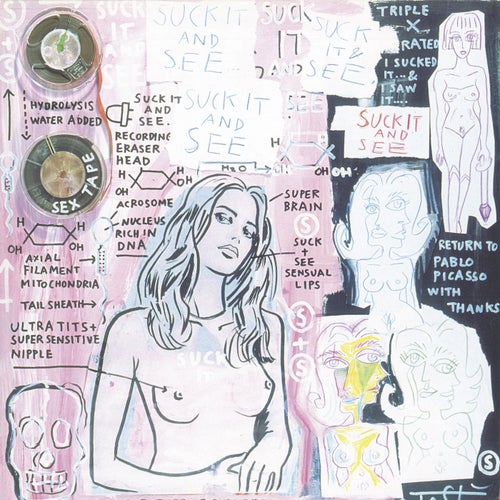 SUCK IT
AND
SEE...
SUCK
IT
AND
SUCK
IT &
SEE
SUCK IT
AND
SEE
SEE
TRIPLE
X
RATED
I SUCKED
IT...&
I SAW
IT....
SUCK IT
AND
SEE
HYDROLYSIS
WATER ADDED
SUCK IT
AND
SEE.
RECORDING
ERASER
HEAD
SEX TAPE
H
H
OH
OH
ACROSOME
H2O
OH
OH
NUCLEUS
RICH IN
DNA
H
H
OH
OH
AXIAL
FILAMENT
MITOCHONDRIA
TAIL SHEATH
ULTRA TITS +
SUPER SENSITIVE
NIPPLE
SUPER
BRAIN
S
SUCK
+
SEE
SENSUAL
LIPS
S
+
S
RETURN TO
PABLO
PICASSO
WITH
THANKS
SUCK
IT
S